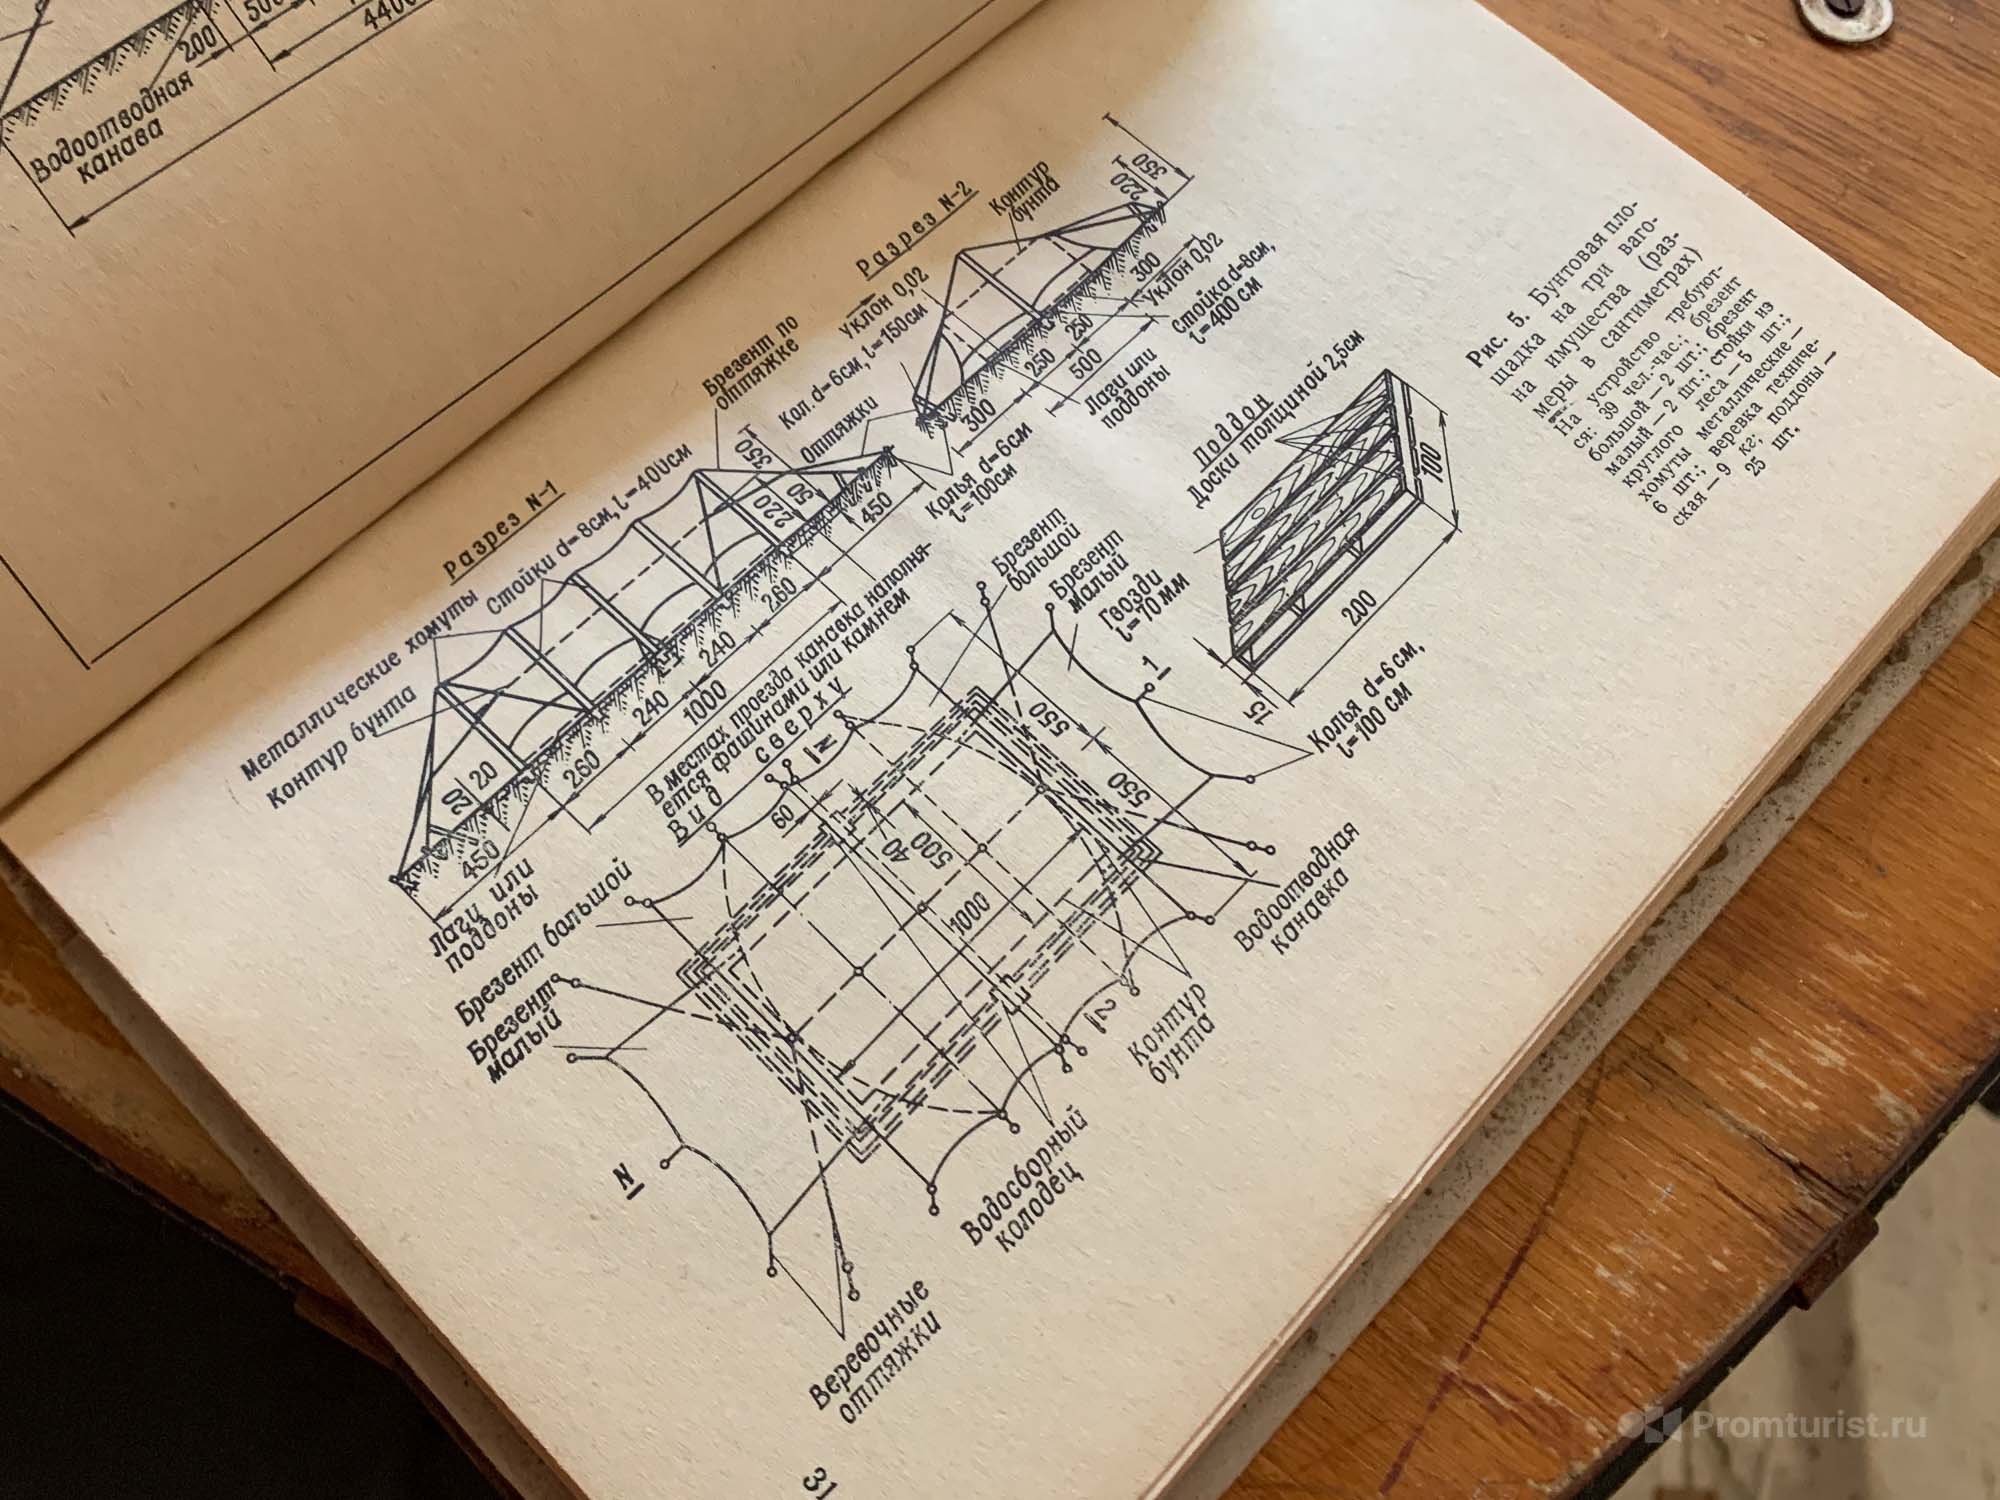 500
200
4400
Водоотводная
канава
Разрез N-1
Металлические хомуты
Стойки d=8см, l=400см
Контур бунта
Брезент по
оттяжке
Кол. d=6см, l=150см
Оттяжки
350
220
50
20
20
450
260
240
240
260
450
1000
Лаги или
поддоны
Колья d=6см
l=100см
Разрез N-2
Контур
бунта
Уклон 0,02
350
220
300
250
250
300
500
Уклон 0,02
Стойка d=8см,
l=400 см
Лаги или
поддоны
В местах проезда канавка наполня-
ется фашинами или камнем
Вид сверху
Брезент большой
Брезент
малый
Брезент
большой
Брезент
малый
Гвозди
l=70мм
Поддон
Доски толщиной 2,5см
100
200
15
Колья d=6 см,
l=100 см
1
N
60
40
500
1000
550
550
2
N
Водоотводная
канавка
Контур
бунта
Водосборный
колодец
Веревочные
оттяжки
Рис. 5. Бунтовая пло-
щадка на три ваго-
на имущества (раз-
меры в сантиметрах)
На устройство требуют-
ся: 39 чел.-час.; брезент
большой — 2 шт.; брезент
малый — 2 шт.; стойки из
круглого леса — 5 шт.;
хомуты металлические —
6 шт.; веревка техниче-
ская — 9 кг; поддоны —
25 шт.
31
Promturist.ru